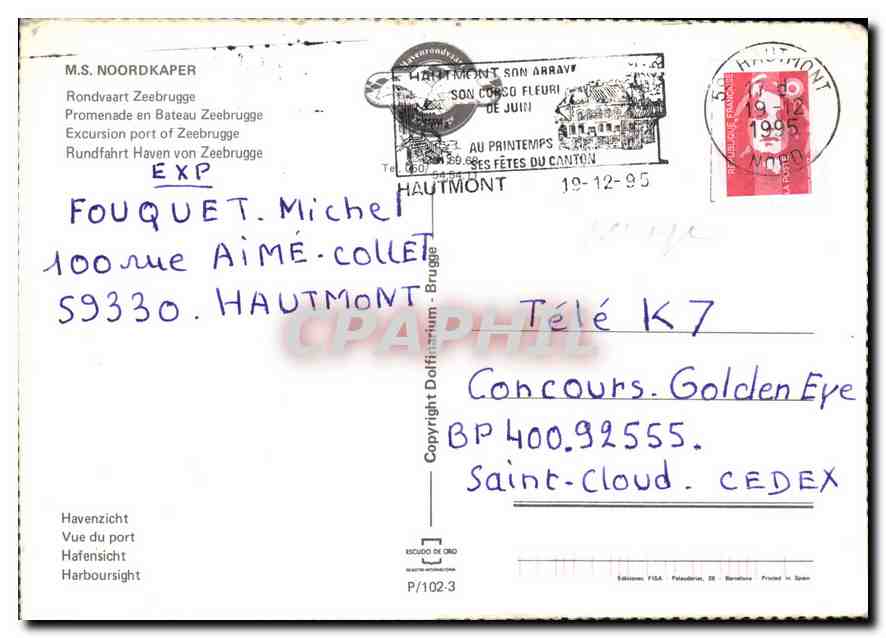 M.S. NOORDKAPER
Rondvaart Zeebrugge
Promenade en Bateau Zeebrugge
Excursion port of Zeebrugge
Rundfahrt Haven von Zeebrugge
HAUTMONT SON ABBAYE
SON CORSO FLEURI
DE JUIN
AU PRINTEMPS
SES FÊTES DU CANTON
HAUTMONT 19-12-95
59 HAUTMONT
19-12
1995
NORD
REPUBLIQUE FRANÇAISE
LA POSTE
EXP
FOUQUET. Michel
100 rue AiMÉ-COLLET
59330. HAUTMONT
CPAPHIL
Copyright Dolfinarium - Brugge
Télé K7
Concours. Golden Eye
BP 400.92555.
Saint-Cloud. CEDEX
Havenzicht
Vue du port
Hafensicht
Harboursight
ESCUDO DE ORO
P/102-3
Ediciones FISA - Palaudarias, 26 - Barcelona - Printed in Spain